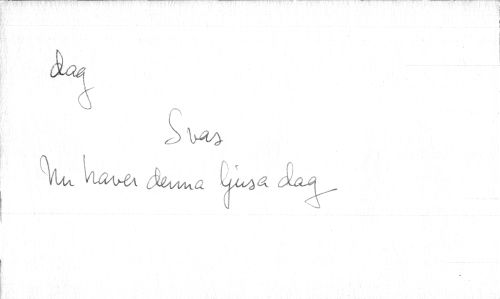 dag
Svas
Nu haver denna ljusa dag